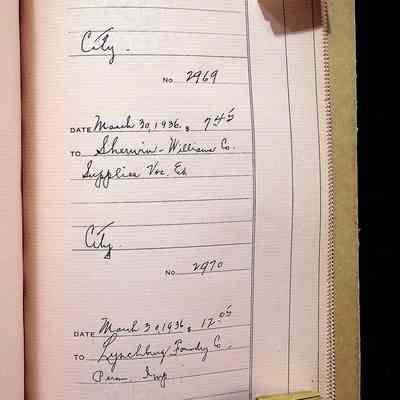 City.
No 2969
DATE March 30, 1936. $ 7 45
TO Sherwin-Williams Co.
Supplies Voc. Ed.
City.
No 2970
DATE March 30, 1936 $ 12.05
TO Lynchburg Foundry Co.
Perm. Imp.